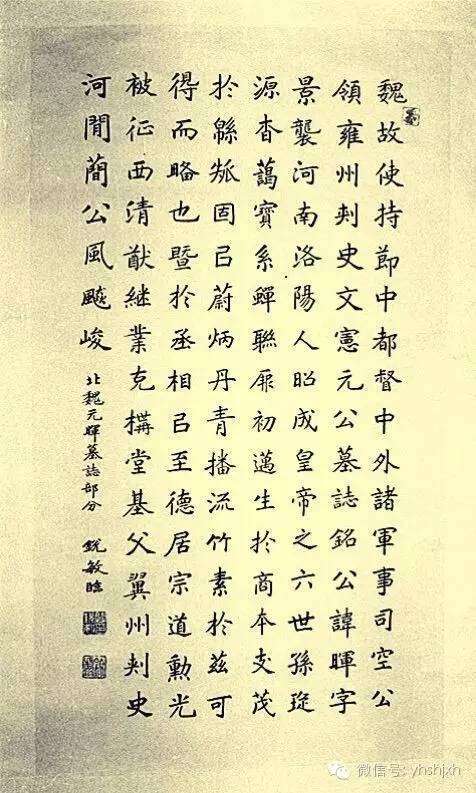 魏故使持節中都督中外諸軍事司空公
領雍州刾史文憲元公墓誌銘公諱暉字
景襲河南洛陽人昭成皇帝之六世孫琁
源杳藹寶系蟬聯厤初邁生於商本支茂
於緜瓞固㠯蔚炳丹青播流竹素於茲可
得而略也暨於丞相㠯至德居宗道勳光
被征西清猷継業克構堂基父翼州刾史
河間簡公風飈峻
北魏元暉墓誌部分
敏臨
微信号: yhshjxh